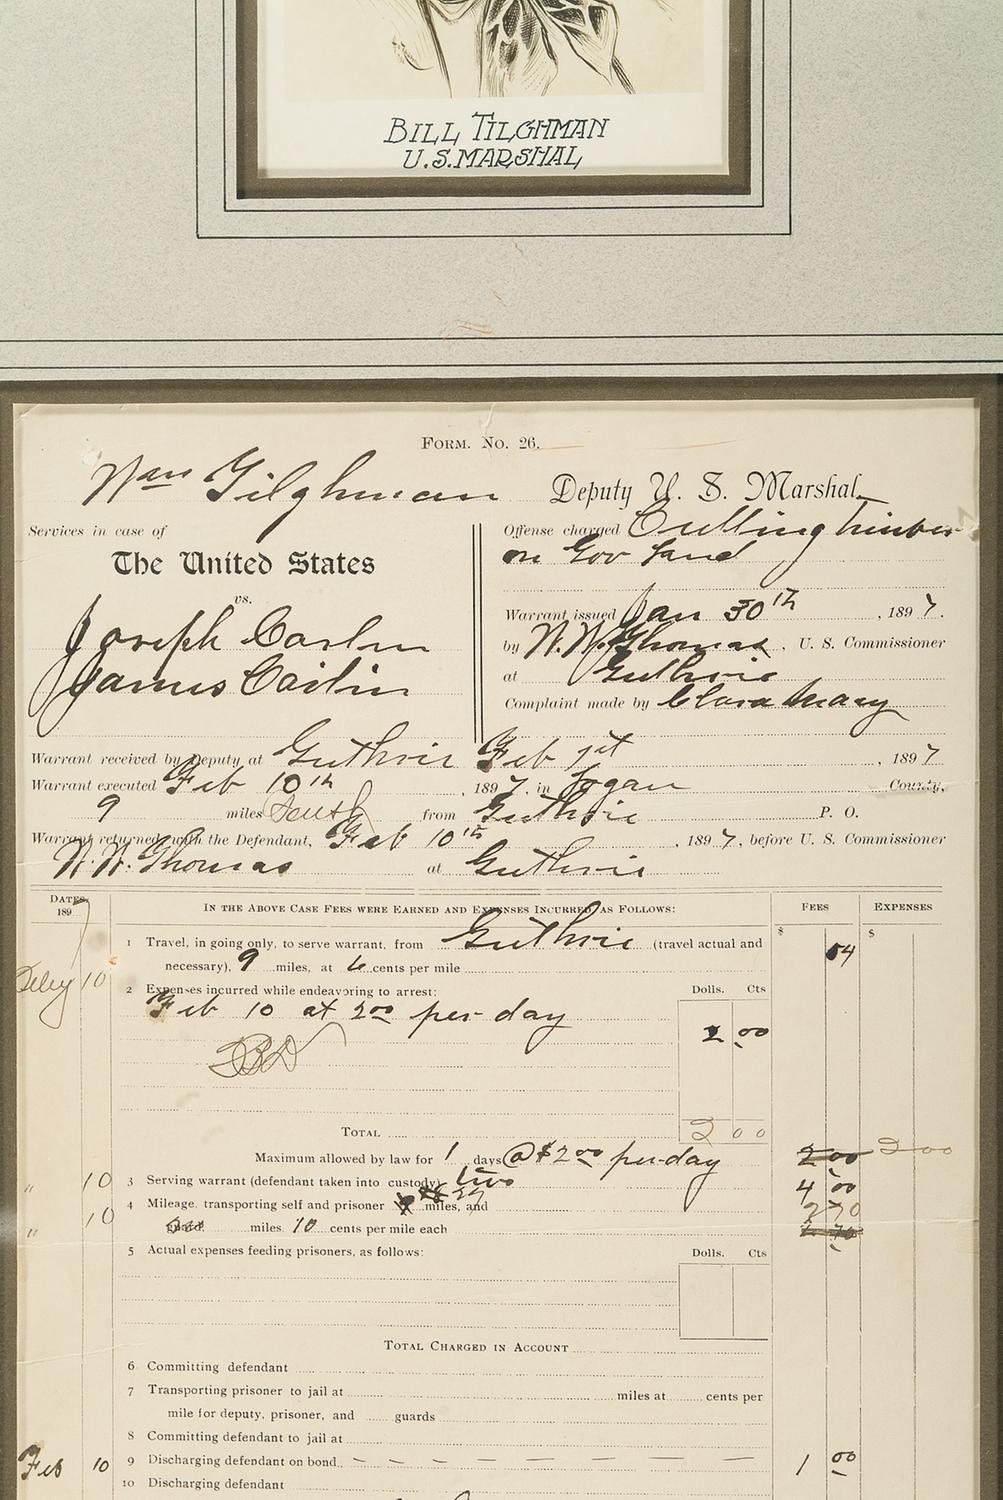 BILL TILGHMAN
U.S. MARSHAL
FORM. No. 26.
Wm Tilghman Deputy U. S. Marshal.
Services in case of
The United States
vs.
Joseph Carlin
James Carlin
Offense charged Cutting timber
on Gov Land
Warrant issued Jan 30th, 1897.
by N. W. Thomas, U. S. Commissioner
at Guthrie
Complaint made by Clara
Warrant received by Deputy at Guthrie Feb 1st, 1897
Warrant executed Feb 10th, 1897, in Logan County,
9 miles South from Guthrie P. O.
Warrant returned with the Defendant, Feb 10th, 1897, before U. S. Commissioner
at Guthrie
DATES. 189 IN THE ABOVE CASE FEES WERE EARNED AND EXPENSES INCURRED AS FOLLOWS: FEES EXPENSES
1 Travel, in going only, to serve warrant, from Guthrie (travel actual and $ $
necessary), 9 miles, at 6 cents per mile 54
10
2 Expenses incurred while endeavoring to arrest: Dolls. Cts
Feb 10 at 2.00 per day 2 00
TOTAL 2 00
Maximum allowed by law for 1 days @ $2.00 per day 2 00 2 00
" 10 3 Serving warrant (defendant taken into custody) two 4 00
" 10 4 Mileage, transporting self and prisoner 27 miles, and 2 70
miles 10 cents per mile each 2 70
5 Actual expenses feeding prisoners, as follows: Dolls. Cts
TOTAL CHARGED IN ACCOUNT
6 Committing defendant
7 Transporting prisoner to jail at miles at cents per
mile for deputy, prisoner, and guards
8 Committing defendant to jail at
Feb 10 9 Discharging defendant on bond 1 00
10 Discharging defendant